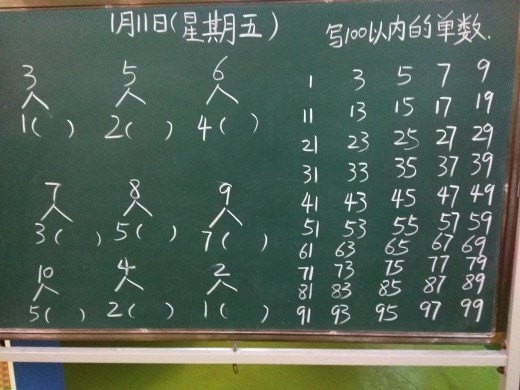 1月11日(星期五)
写100以内的单数.
3 5 6
1( ) 2( ) 4( )
7 8 9
3( ) 5( ) 7( )
10 4 2
5( ) 2( ) 1( )
1 3 5 7 9
11 13 15 17 19
21 23 25 27 29
31 33 35 37 39
41 43 45 47 49
51 53 55 57 59
61 63 65 67 69
71 73 75 77 79
81 83 85 87 89
91 93 95 97 99